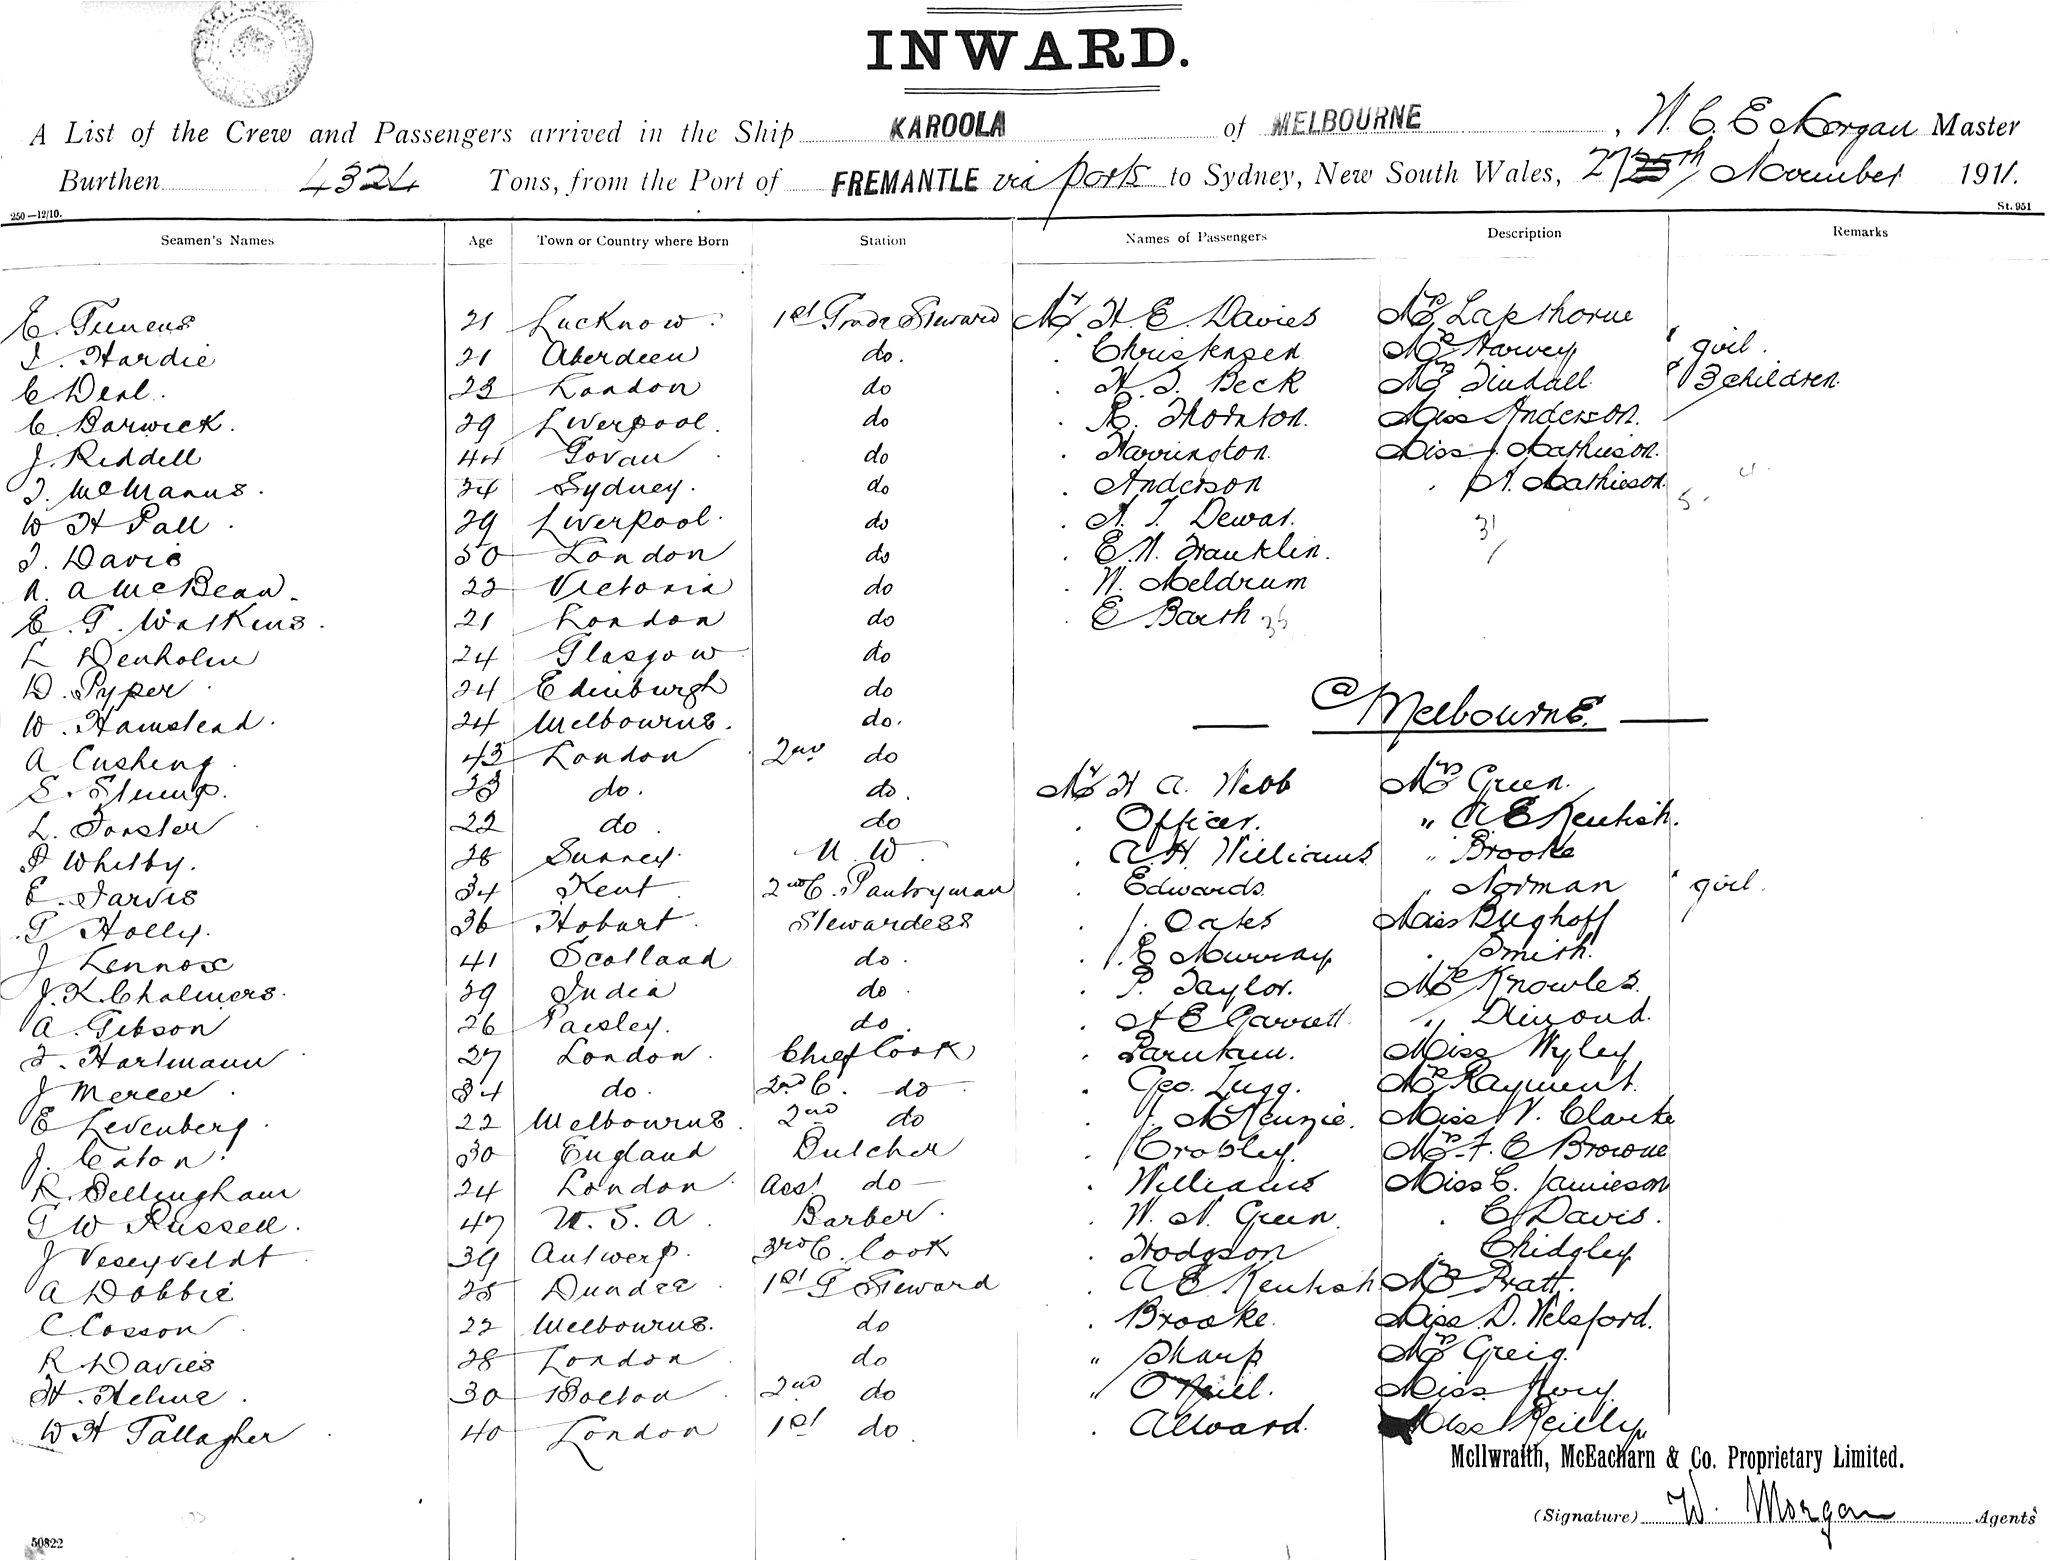 INWARD.
A List of the Crew and Passengers arrived in the Ship KAROOLA of MELBOURNE, W. C. E Morgan Master
Burthen 4324 Tons, from the Port of FREMANTLE via ports to Sydney, New South Wales, 27th November 1911.
250—12/10. St. 951
Seamen's Names Age Town or Country where Born Station Names of Passengers Description Remarks
E. 21 Lucknow. 1st Grade Steward Mr H. E. Davies Mrs Lapthorne
J. Hardie 21 Aberdeen do. . Christensen Mrs Harvey " girl.
C Deal. 23 London do . H. J. Beck Mrs Tindall " 3 children
C. Barwick. 29 Liverpool. do . R. Thornton. Miss Anderson.
J. Riddell 44 Govan do . Harrington. Miss J. Mathieson.
J. McManus. 24 Sydney. do . Anderson . A. Mathieson.
W H Pall. 29 Liverpool. do . A. J. Dewar. 31
J. Davie 50 London do . E. W. Franklin.
A. A McBean. 22 Victoria do . W. Meldrum
E. G. Watkins. 21 London do . E Barth 36
L Denholm 24 Glasgow do
D. Pyper 24 Edinburgh do
W. Hamstead. 24 Melbourne. do. @ Melbourne.
A Cushing. 43 London 2nd do
S. Stump. 23 do. do. Mr H A. Webb Mrs Green.
L. Forster 22 do. do . Officer. " A E Kentish.
Whitby. 28 Surrey. N. W. . A. H. Williams " Brooke
E. Jarvis 34 Kent 2nd C. Pantryman . Edwards " Norman " girl.
G Holly. 36 Hobart Stewardess . J. Oates Miss Bughoff
J Lennox 41 Scotland do. . E Murray . Smith.
J. K. Chalmers. 29 India do. . P. Taylor. Mrs Knowles.
A. Gibson 26 Paisley. do. . A E Garrett " Dimond.
J. Hartmann 27 London. Chief Cook . Miss Wyley
J Mercer. 34 do. 2nd C. do . Geo. Tugg. Mrs Rayment.
E Levenberg. 22 Melbourne. 2nd do . J. McKenzie. Miss V. Clarke
J. Caton. 30 England Butcher . Crobley. Mrs F. E Browne
R. Bellingham 24 London. Asst do . Williams Miss C. Jamieson
G W Russell. 47 U. S. A. Barber. . W. N. Green . E Davis.
J Veseyveldt 39 Antwerp. 3rd C. Cook . Hodgson " Chidgley
A Dobbie 25 Dundee 1st G Steward . A E Kentish Mrs Pratt.
C. Cosson 22 Melbourne. do . Brooke. Miss D. Welsford.
R Davies 28 London do " Sharp Mrs Greig.
H. Helme. 30 Bolton 2nd do " O'Neill. Miss Hory
W H Gallagher 40 London 1st do. . Allward. Miss Reilly
McIlwraith, McEacharn & Co. Proprietary Limited.
(Signature) W. Morgan Agents
50822